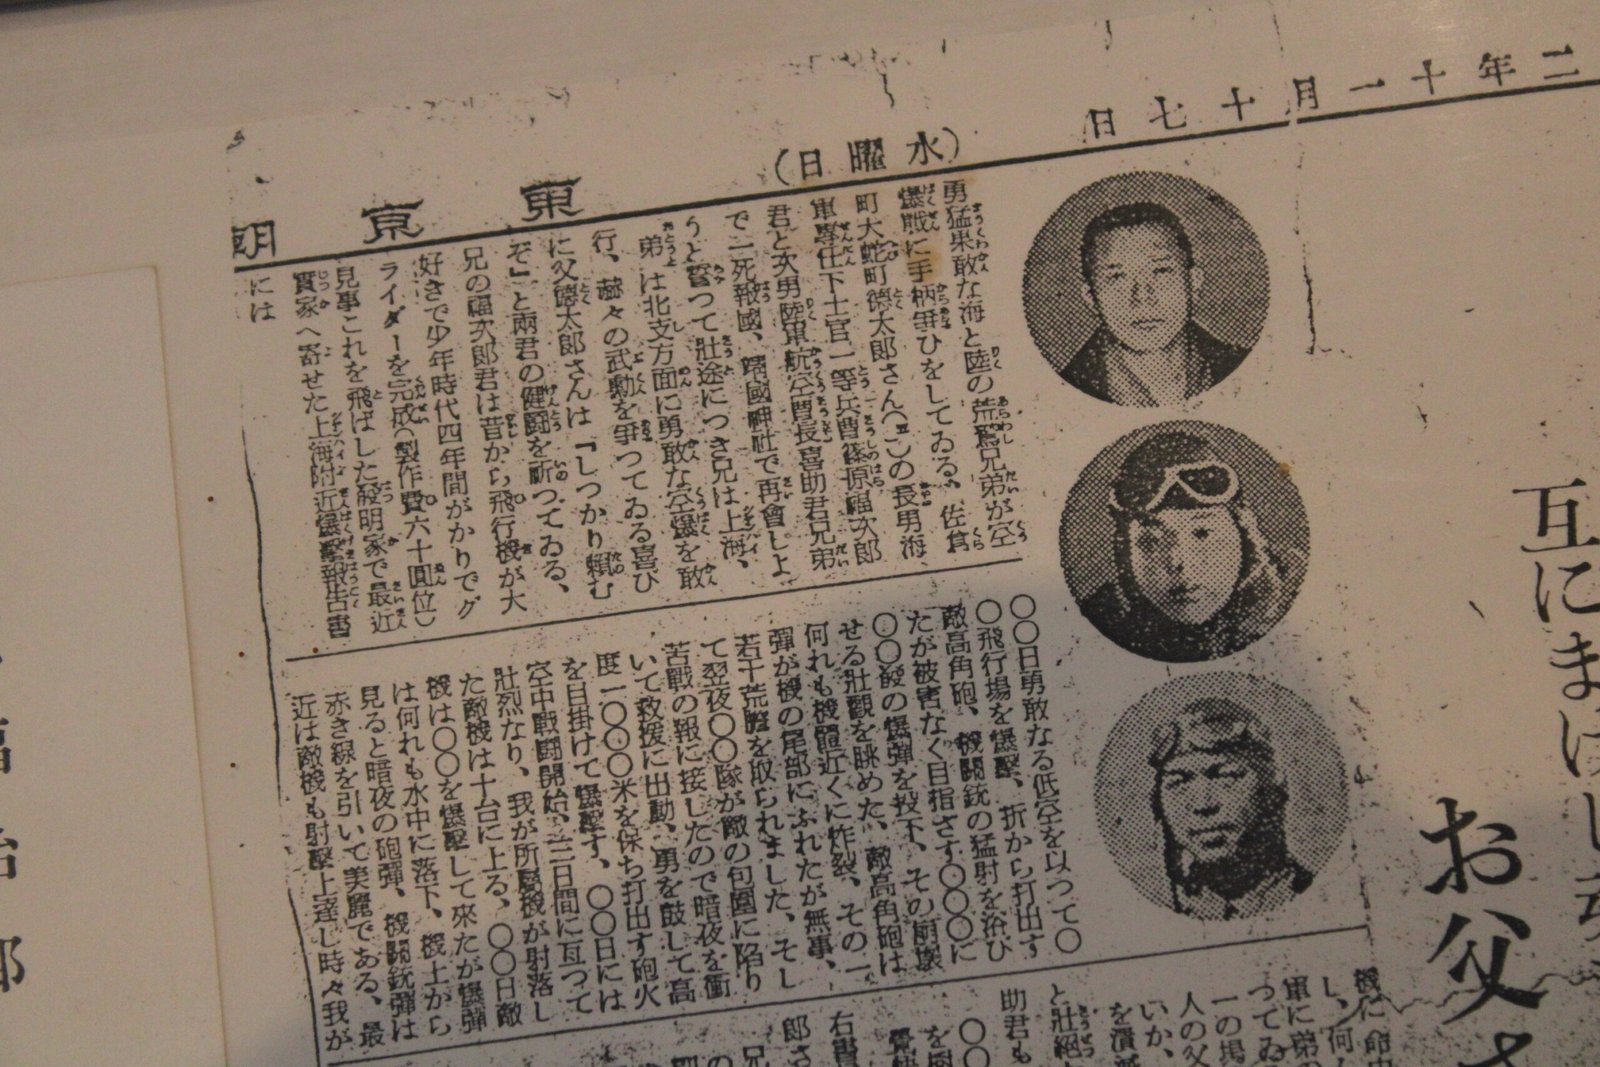 二年十一月十七日
(水曜日)
東京朝
互にまけじ
お父さ
勇猛果敢な海と陸の荒鷲兄弟が空
爆戰に手柄爭ひをしてゐる、佐倉
町大蛇町德太郎さん(五二)の長男海
軍專任下士官一等兵曹篠原福次郎
君と次男陸軍航空曹長喜助君兄弟
で一死報國、靖國神社で再會しよ
うと誓つて壯途につき兄は上海、
弟は北支方面に勇敢な空爆を敢
行、赫々の武勳を爭つてゐる喜び
に父德太郎さんは『しつかり賴む
ぞ』と兩君の健鬪を祈つてゐる、
兄の福次郎君は昔から飛行機が大
好きで少年時代四年間がかりでグ
ライダーを完成(製作費六十圓位)
見事これを飛ばした發明家で最近
實家へ寄せた上海附近爆擊報告書
には
〇〇日勇敢なる低空を以つて〇
〇飛行場を爆擊、折から打出す
敵高角砲、機關銃の猛射を浴び
たが被害なく目指す〇〇〇に
〇〇發の爆彈を投下、その崩壞
せる壯觀を眺めた、敵高角砲は
何れも機體近くに炸裂、その一
彈が機の尾部にふれたが無事、
若干荒膽を取られました、そし
て翌夜〇〇隊が敵の包圍に陷り
苦戰の報に接したので暗夜を衝
いて救援に出動、勇を鼓して高
度一〇〇〇米を保ち打出す砲火
を目掛けて爆擊す、〇〇日には
空中戰鬪開始、三日間に亙つて
壯烈なり、我が所屬機が射落し
た敵機は十台に上る、〇〇日敵
機は〇〇を爆擊して來たが爆彈
は何れも水中に落下、機上から
見ると暗夜の砲彈、機關銃彈は
赤き線を引いて美麗である、最
近は敵機も射擊上達し時々我が
機に命中
し、何
軍に弟の
つてゐ
一の場
人の父
いか、
を潰滅
と壯絕
助君も
右書
郎さ